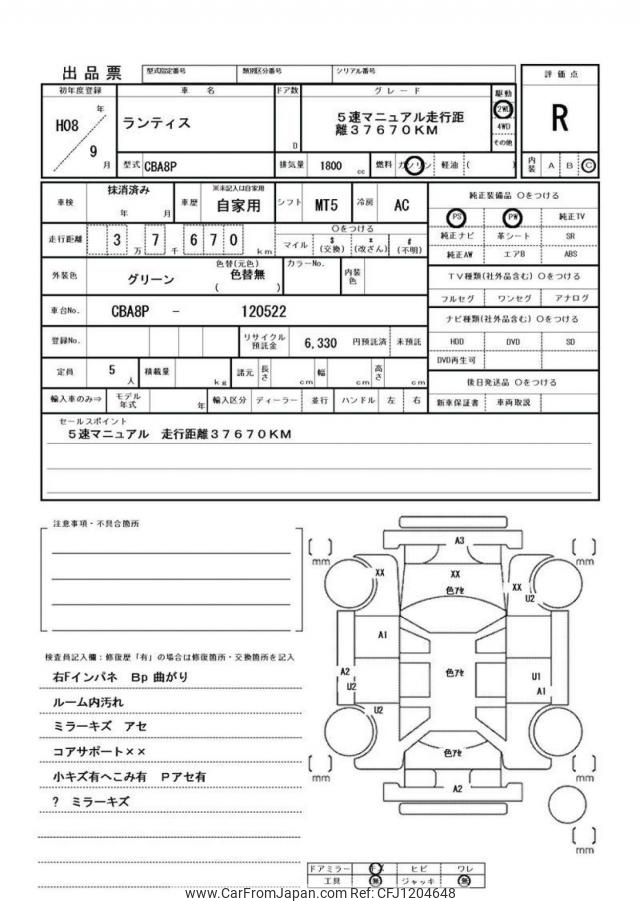 出品票 型式指定番号 類別区分番号 シリアル番号
評価点
R
初年度登録 車名 ドア数 グレード 駆動
H08 年
9 月
ランティス
D
5速マニュアル走行距
離37670KM
2WD
4WD
その他
型式 CBA8P 排気量 1800 cc 燃料 ガソリン 軽油 ( )
内装 A B C
車検 抹消済み
年 月
車歴 ※未記入は自家用
自家用
シフト MT5 冷房 AC
走行距離 3 万 7 千 6 7 0 km
○をつける
マイル $ (交換) * (改ざん) # (不明)
外装色 グリーン 色替(元色)
色替無
( )
カラーNo. 内装色
車台No. CBA8P - 120522
登録No. リサイクル預託金 6,330 円預託済 未預託
定員 5 人 積載量 kg 諸元 長さ cm 幅 cm 高さ cm
輸入車のみ⇒ モデル年式 年 輸入区分 ディーラー 並行 ハンドル 左 右
純正装備品 ○をつける
PS PW 純正TV
純正ナビ 革シート SR
純正AW エアB ABS
TV種類(社外品含む) ○をつける
フルセグ ワンセグ アナログ
ナビ種類(社外品含む) ○をつける
HDD DVD SD
DVD再生可
後日発送品 ○をつける
新車保証書 車両取説
セールスポイント
5速マニュアル 走行距離37670KM
注意事項・不具合箇所
検査員記入欄:修復歴「有」の場合は修復箇所・交換箇所を記入
右Fインパネ Bp曲がり
ルーム内汚れ
ミラーキズ アセ
コアサポート××
小キズ有へこみ有 Pアセ有
? ミラーキズ
A3
mm
mm
XX
XX
色アセ
XX
U2
A1
A2
U2
色アセ
U1
A1
U2
色アセ
A2
mm
mm
mm
ドアミラー キズ ヒビ ワレ
工具 無 ジャッキ 無
www.CarFromJapan.com Ref: CFJ1204648